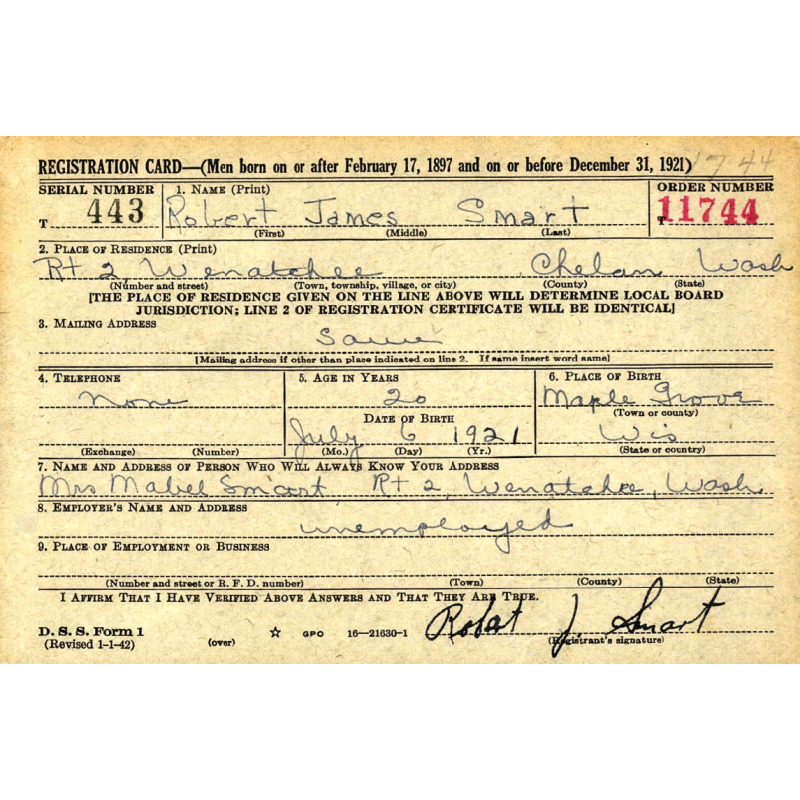 REGISTRATION CARD—(Men born on or after February 17, 1897 and on or before December 31, 1921) 44
SERIAL NUMBER 1. NAME (Print) ORDER NUMBER
T 443 Robert James Smart T 11744
(First) (Middle) (Last)
2. PLACE OF RESIDENCE (Print)
Rt 2, Wenatchee Chelan Wash
(Number and street) (Town, township, village, or city) (County) (State)
[THE PLACE OF RESIDENCE GIVEN ON THE LINE ABOVE WILL DETERMINE LOCAL BOARD
JURISDICTION; LINE 2 OF REGISTRATION CERTIFICATE WILL BE IDENTICAL]
3. MAILING ADDRESS
Same
[Mailing address if other than place indicated on line 2. If same insert word same]
4. TELEPHONE 5. AGE IN YEARS 6. PLACE OF BIRTH
None 20 Maple Grove
DATE OF BIRTH (Town or county)
July 6 1921 Wis
(Exchange) (Number) (Mo.) (Day) (Yr.) (State or country)
7. NAME AND ADDRESS OF PERSON WHO WILL ALWAYS KNOW YOUR ADDRESS
Mrs Mabel Smart Rt 2, Wenatchee, Wash
8. EMPLOYER'S NAME AND ADDRESS
unemployed
9. PLACE OF EMPLOYMENT OR BUSINESS
(Number and street or R. F. D. number) (Town) (County) (State)
I AFFIRM THAT I HAVE VERIFIED ABOVE ANSWERS AND THAT THEY ARE TRUE.
D. S. S. Form 1 Robert J. Smart
(Revised 1-1-42) (over) ☆ GPO 16—21630-1 (Registrant's signature)